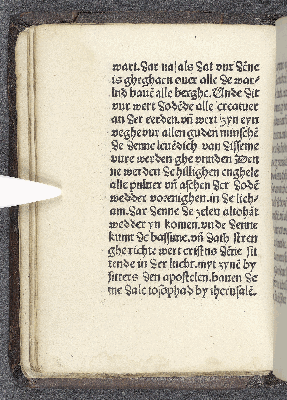 wart. Dar na⸗ als dat vur dēne
is gheghaen ouer alle de war⸗
lnd bauē alle berghe. Unde dit
vur wert dodēde alle creatuer
an der eerden. vñ wert zyn eyn
veghevur allen guden minschē
de denne leuēdich van dissme
vure werden ghevunden Den
ne werden de hillighen enghele
alle puluer vñ aschen der dodē
wedder vorenighen. in de lich⸗
am. Dar denne de zelen altohāt
wedder yn komen. unde denne
kumt de bassune. vñ dath stren
ghe richte wert cristus dēne sit
tende in der lucht. myt zynē by
sitters den apostelen. bauen de
me dale iosophad by iherusalē.